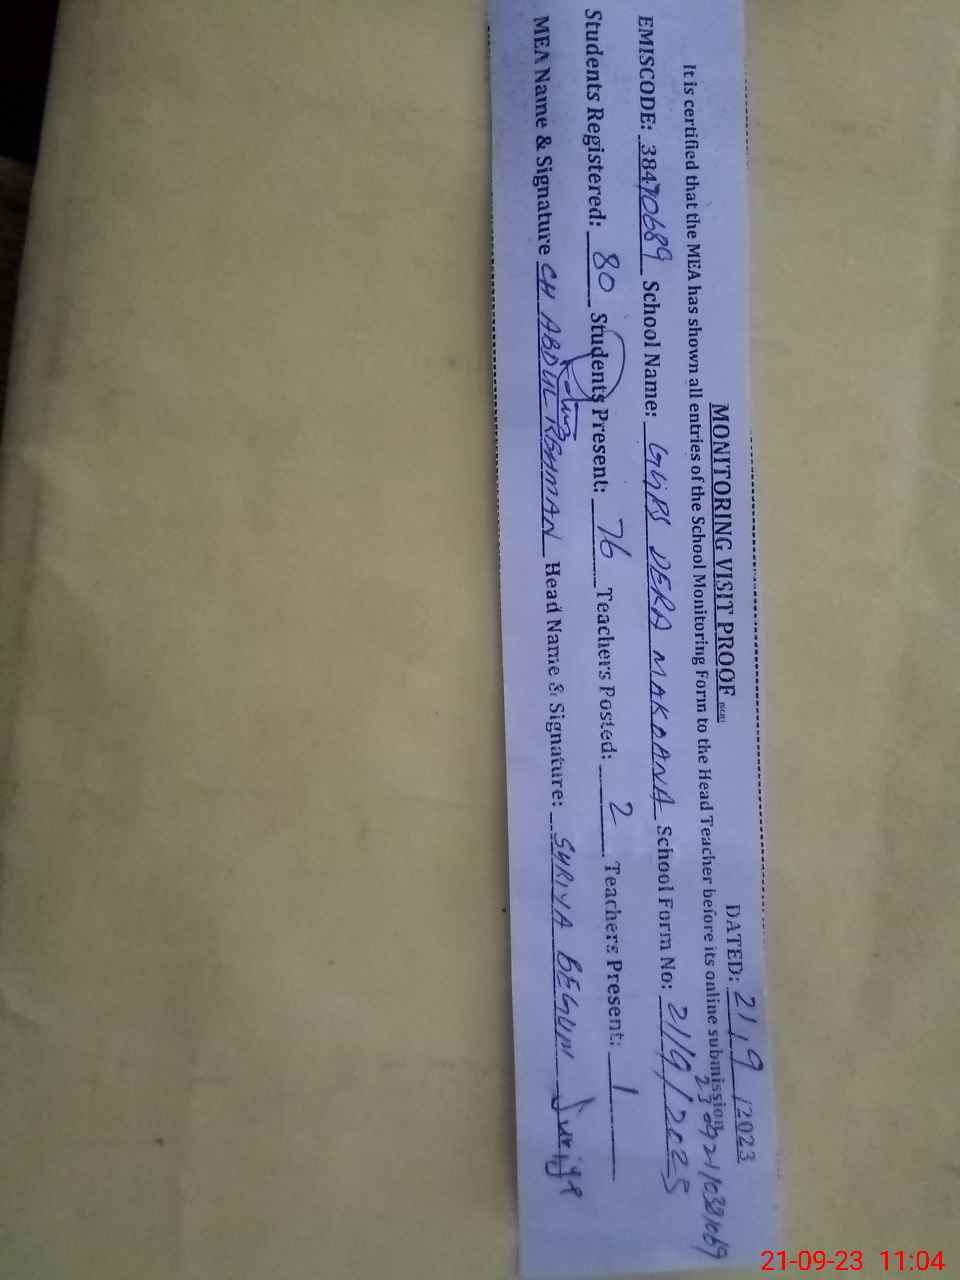 MONITORING VISIT PROOF
DATED: 21/9/2023
It is certified that the MEA has shown all entries of the School Monitoring Form to the Head Teacher before its online submission
EMISCODE: 38470689 School Name: GGPS DERA MAKDANA School Form No: 21/9/2023
Students Registered: 80 Students Present: 76 Teachers Posted: 2 Teachers Present: 1
MEA Name & Signature CH ABDUL REHMAN Head Name & Signature: SYRIYA BEGUM
21-09-23 11:04